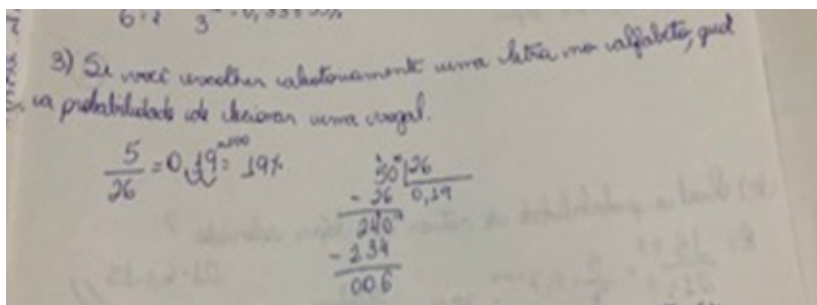 6:2 3
3) Se você escolher aleatoriamente uma letra no alfabeto, qual
a probabilidade de uma vogal.
5/26 = 0,19 = 19%
50 | 26
- 26 0,19
240
- 234
006